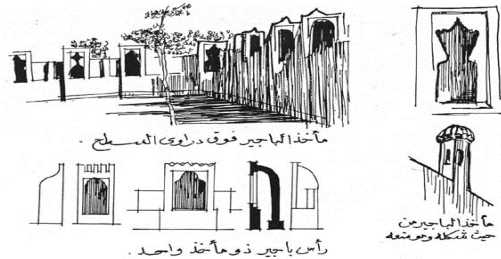 مأخذ الباجير فوق دراوي السطح.
رأس باجير ذو مأخذ واحد.
مأخذ الباجير من
حيث شكله وموضعه